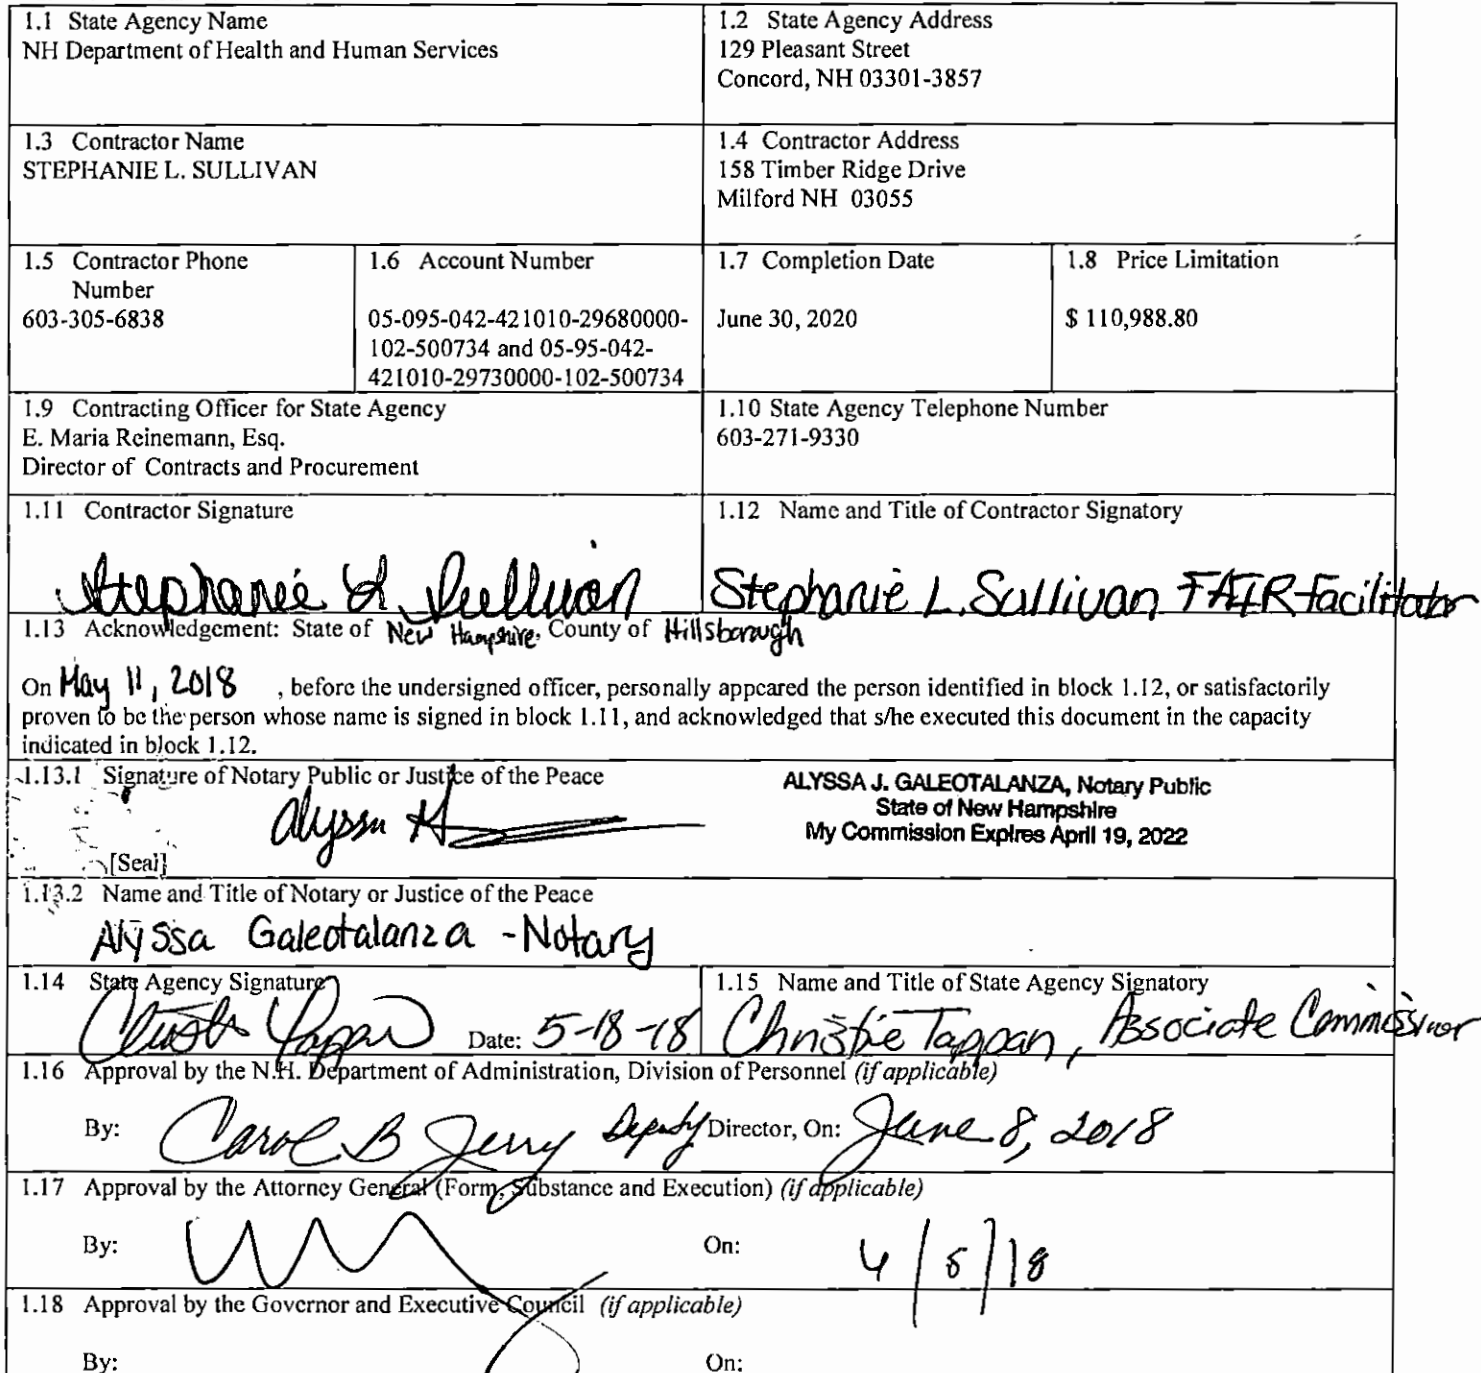 1.1 State Agency Name
NH Department of Health and Human Services
1.2 State Agency Address
129 Pleasant Street
Concord, NH 03301-3857
1.3 Contractor Name
STEPHANIE L. SULLIVAN
1.4 Contractor Address
158 Timber Ridge Drive
Milford NH 03055
1.5 Contractor Phone
Number
603-305-6838
1.6 Account Number
05-095-042-421010-29680000-
102-500734 and 05-95-042-
421010-29730000-102-500734
1.7 Completion Date
June 30, 2020
1.8 Price Limitation
$ 110,988.80
1.9 Contracting Officer for State Agency
E. Maria Reinemann, Esq.
Director of Contracts and Procurement
1.10 State Agency Telephone Number
603-271-9330
1.11 Contractor Signature
Stephanie L. Sullivan
1.12 Name and Title of Contractor Signatory
Stephanie L. Sullivan FAIR facilitator
1.13 Acknowledgement: State of New Hampshire, County of Hillsborough
On May 11, 2018 , before the undersigned officer, personally appeared the person identified in block 1.12, or satisfactorily
proven to be the person whose name is signed in block 1.11, and acknowledged that s/he executed this document in the capacity
indicated in block 1.12.
1.13.1 Signature of Notary Public or Justice of the Peace
Alyssa
[Seal]
ALYSSA J. GALEOTALANZA, Notary Public
State of New Hampshire
My Commission Expires April 19, 2022
1.13.2 Name and Title of Notary or Justice of the Peace
Alyssa Galeotalanza - Notary
1.14 State Agency Signature
Date: 5-18-18
1.15 Name and Title of State Agency Signatory
Christie Tappan, Associate Commissioner
1.16 Approval by the N.H. Department of Administration, Division of Personnel (if applicable)
By: Carol B Jerry Deputy Director, On: June 8, 2018
1.17 Approval by the Attorney General (Form, Substance and Execution) (if applicable)
By: On: /18
1.18 Approval by the Governor and Executive Council (if applicable)
By: On: